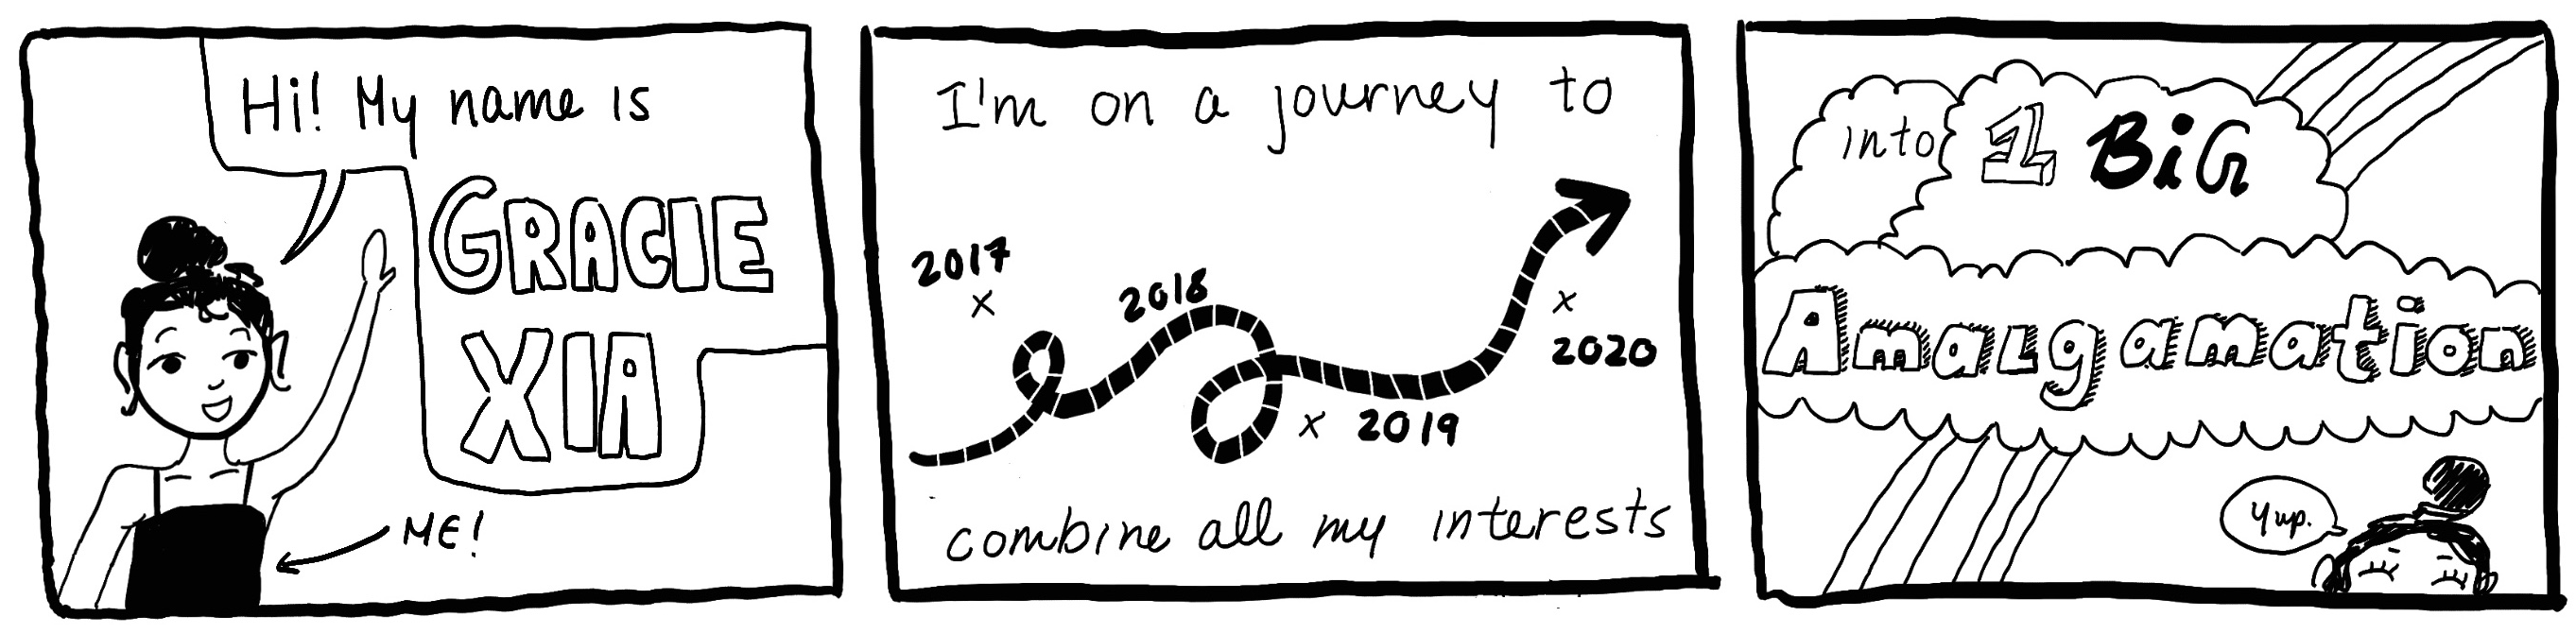 Hi! My name is
GRACIE
XIA
ME!
I'm on a journey to
2017
2018
2019
2020
combine all my interests
into 1 BiG
Amalgamation
Yup.